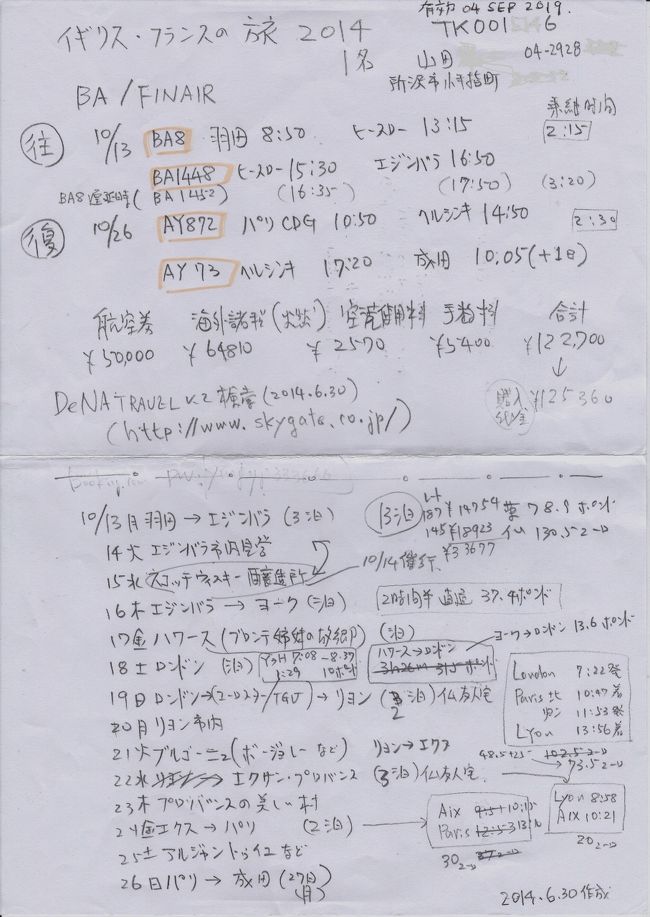 有効 04 SEP 2019.
イギリス・フランスの旅 2014
TK001 6
1名
山田 04-2928
所沢市小手指町
BA / FINAIR
乗継時間
往 10/13 BA8 羽田 8:50 ヒースロー 13:15 2:15
BA1448 ヒースロー 15:30 エジンバラ 16:50
BA8遅延時( BA1452) (16:35) (17:50) (3:20)
復 10/26 AY872 パリ CDG 10:50 ヘルシンキ 14:50 2:30
AY73 ヘルシンキ 17:20 成田 10:05(+1日)
航空券 海外諸税 空港使用料 手数料 合計
¥50,000 ¥64810 ¥2570 ¥5400 ¥122,700
↓
DeNA TRAVEL にて (2014.6.30)
購入代金 ¥125360
(http://www.skygate.co.jp/)
booking.com
10/13月 羽田 → エジンバラ (3泊)
13泊
187 ¥14754 英 78.9 ポンド
145 ¥18923 仏 130.5ユーロ
¥33677
14火 エジンバラ市内見学
10/14催行
15水 スコッチウィスキー醸造所
16木 エジンバラ → ヨーク (泊)
2時間半 直通 37.4ポンド
17金 ハワース (ブロンテ姉妹の故郷) (泊)
ヨーク→ロンドン 13.6ポンド
18土 ロンドン (泊)
ヨークH 7:08-8:37
1:29 10ポンド
ハワース→ロンドン
3h26m 31.5ポンド
London 7:22発
Paris北 10:47着
リヨン 11:53発
Lyon 13:56着
19日 ロンドン→(ユーロスター/TGV)→リヨン (2泊) 仏友人宅
20月 リヨン市内
21火 ブルゴーニュ(ボージョレーなど) リヨン→エクス
48.5+25 102.5ユーロ
→73.5ユーロ
22水 → エクサン・プロバンス (3泊) 仏友人宅
Lyon 8:58
AIX 10:21
20ユーロ
23木 プロバンスの美しい村
24金 エクス → パリ (2泊)
Aix 9:51 10:15
Paris 12:53
30ユーロ 37ユーロ
25土 アルジャントゥイユなど
26日 パリ → 成田 (27日月)
2014.6.30作成